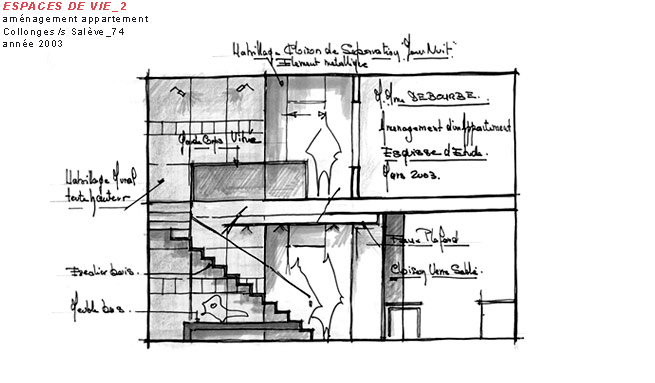 ESPACES DE VIE_2
aménagement appartement
Collonges /s Salève_74
année 2003
Habillage Cloison de Séparation "Jour Nuit"
Element métallique
M. Mme DEBOURBE.
Aménagement d'un Appartement
Esquisse d'Etude.
Mars 2003.
Garde Corps Vitré
Habillage Mural
toute hauteur
Faux Plafond
Cloison Verre Sablé.
Escalier bois.
Meuble bas.